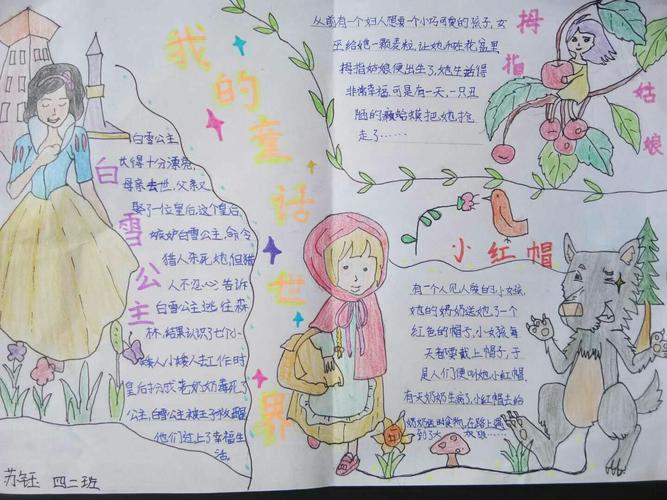 我的童话世界
白雪公主
白雪公主
长得十分漂亮,
母亲去世,父亲又
娶了一位皇后,这个皇后
嫉妒白雪公主,命令
猎人杀死她,但猎
人不忍心告诉
白雪公主逃往森
林,结果认识了七个小
矮人小矮人去工作时
皇后扮成老奶奶毒死了
公主,白雪公主被王子救醒
他们过上了幸福生
活。
苏钰 四二班
拇指姑娘
从前有一个妇人想要一个小巧可爱的孩子,女
巫给她一颗麦粒,让她种在花盆里
拇指姑娘便出生了,她生活得
非常幸福,可是有一天,一只丑
陋的癞蛤蟆把她抢
走了……
小红帽
有一个人见人爱的小女孩,
她的奶奶送她了一个
红色的帽子,小女孩每
天都要戴上帽子,于
是人们便叫她小红帽
有天奶奶生病了,小红帽去给
奶奶送食物,在路上遇
到了大灰狼……